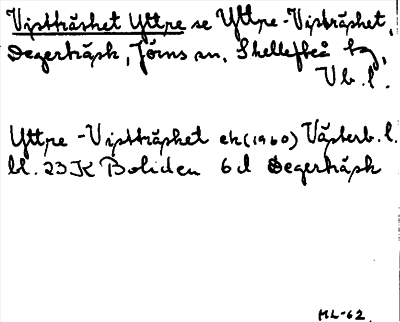 Vistträsket Yttre se Yttre-Vistträsket,
Degerträsk, Jörns sn, Skellefteå tg,
Vb.l.
Yttre-Vistträsket ek (1960) Västerb.l.
bl. 23K Boliden 6d Degerträsk
ML-62.